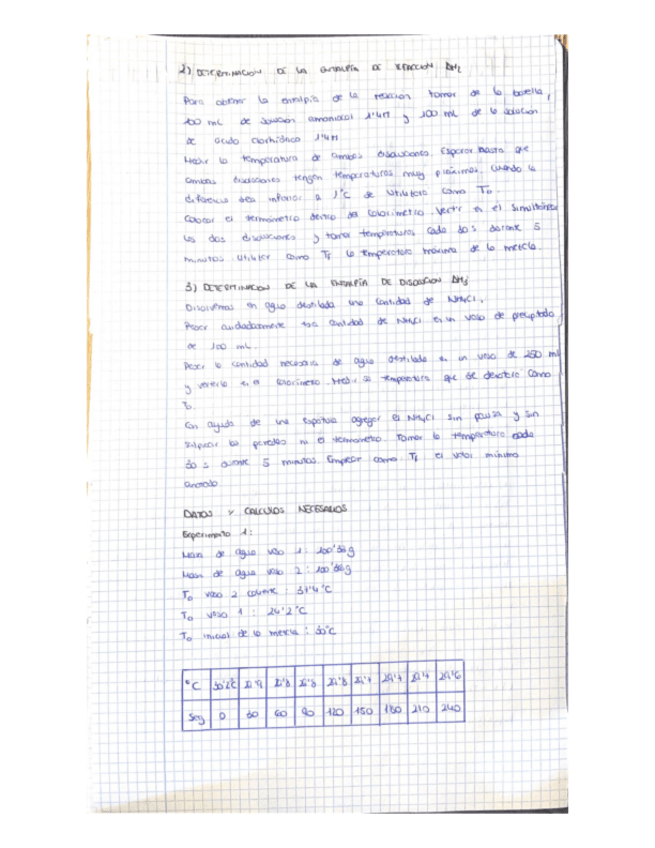 2) DETERMINACION DE LA ENTALPÍA DE REACCION ΔH₂
Para obtener la entalpía de la reaccion tomar de la botella,
100 mL de disolucion amoniacal 1'4M y 100 mL de la disolucion
de acido clorhidrico 1'4M
Medir la temperatura de ambas disoluciones. Esperar hasta que
ambas disoluciones tengan temperaturas muy próximas. Cuando la
diferencia sea inferior a 1°C se utilizara como T₀.
Colocar el termometro dentro del calorimetro. Vertir en el simultánea
las dos disoluciones y tomar temperaturas cada 30 s durante 5
minutos. Utilizar como Tf la temperatura máxima de la mezcla.
3) DETERMINACION DE LA ENTALPÍA DE DISOLUCION ΔH₃
Disolvemos en agua destilada una cantidad de NH₄Cl.
Pesar cuidadosamente esa cantidad de NH₄Cl en un vaso de precipitado
de 100 mL.
Pesar la cantidad necesaria de agua destilada en un vaso de 250 ml
y verterla en el calorimetro. Medir la temperatura que se denotara como
T₀.
Con ayuda de una espatula agregar el NH₄Cl sin pausa y sin
salpicar las paredes ni el termometro. Tomar la temperatura cada
30 s durante 5 minutos. Emplear como Tf el valor mínimo
anotado
DATOS Y CALCULOS NECESARIOS
Experimento 1:
Masa de agua vaso 1: g
Masa de agua vaso 2: g
T₀ vaso 2 caliente: 37'4°C
T₀ vaso 1: 24'2°C
T₀ inicial de la mezcla: 30°C
°C 29'8 29'4 29'4 29'6
Seg 0 30 60 90 120 150 180 210 240